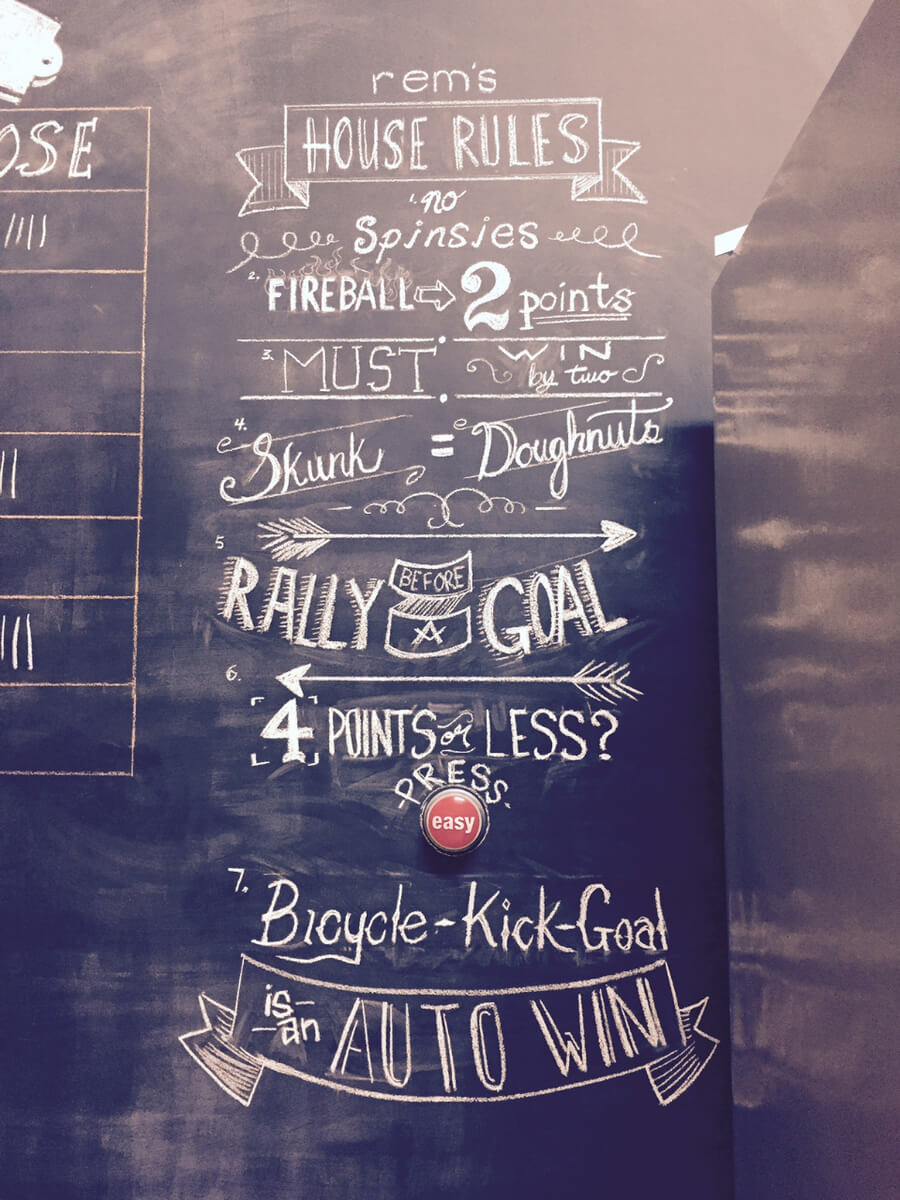 rem's
HOUSE RULES
1. no
Spinsies
2. FIREBALL ⇨ 2 points
3. MUST WIN
by two
4. Skunk = Doughnuts
5 RALLY BEFORE A GOAL
6. 4 POINTS or LESS?
PRESS
easy
7. Bicycle-Kick-Goal
is an AUTO WIN